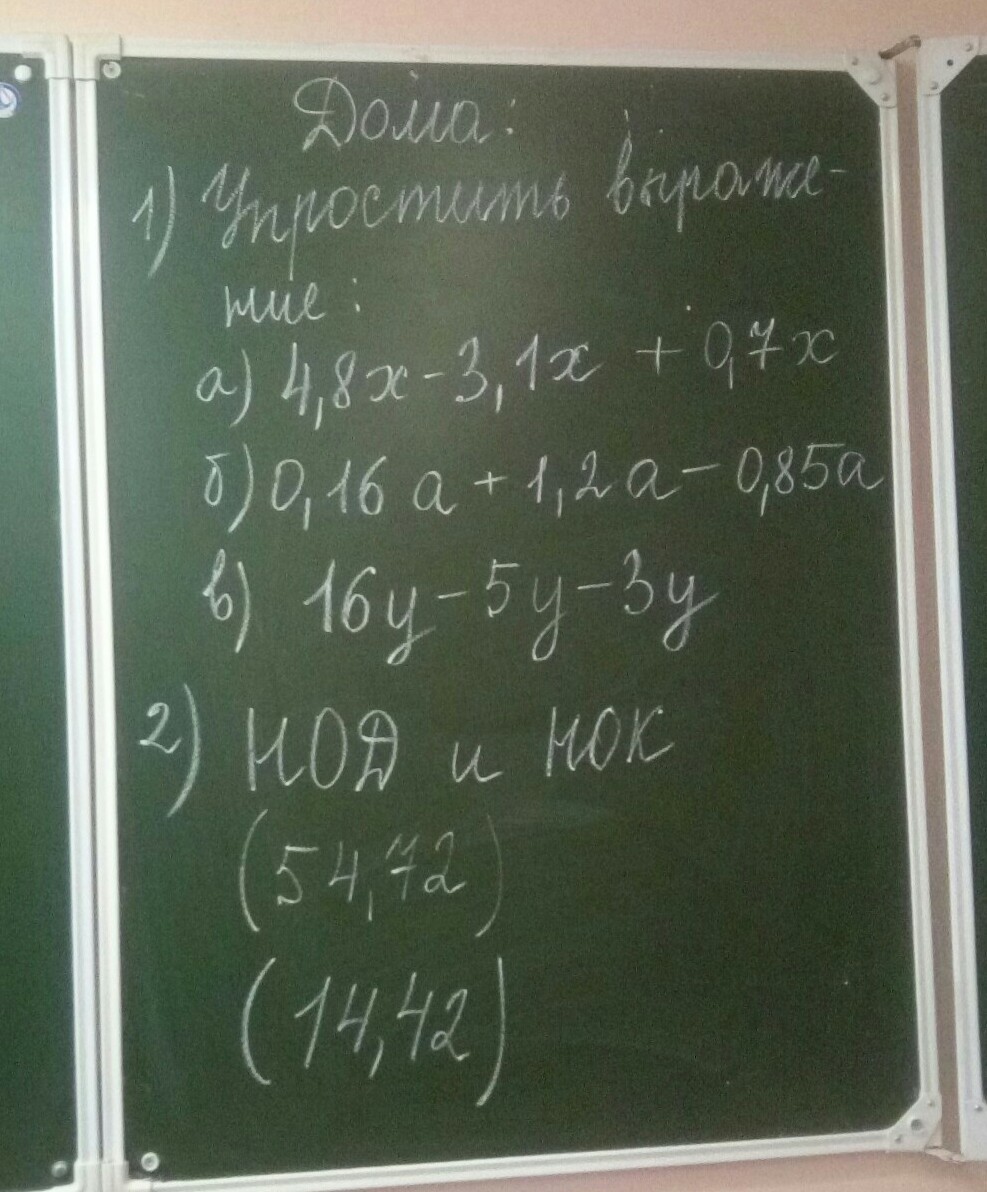 Дома:
1) Упростить выраже-
ние:
а) 4,8х - 3,1х + 0,7х
б) 0,16 а + 1,2 а - 0,85а
в) 16у - 5у - 3у
2) НОД и НОК
(54,72)
(14,42)